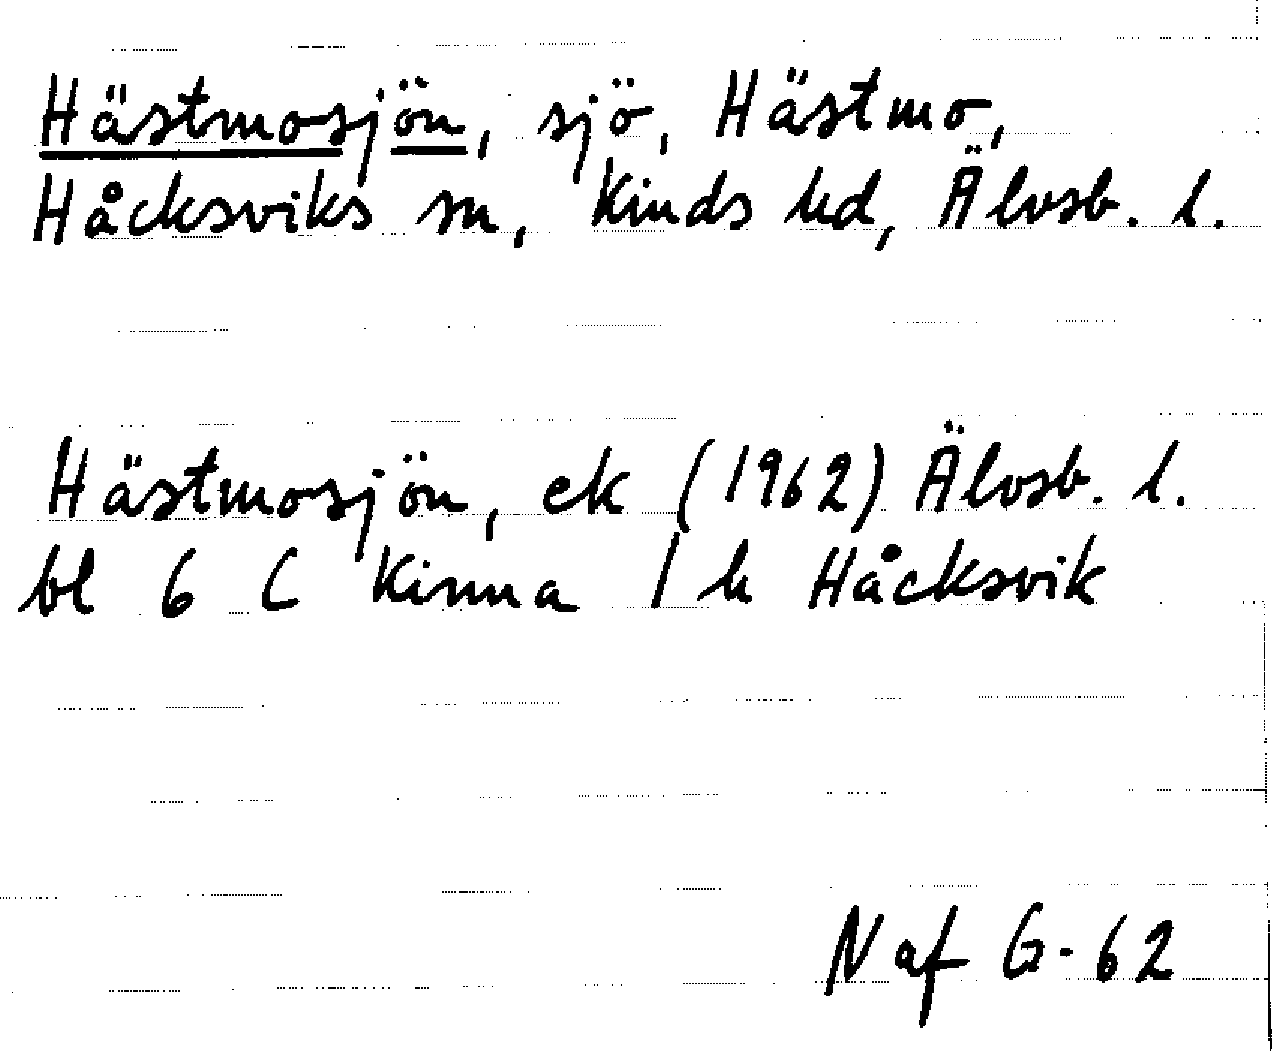 Hästmosjön, sjö, Hästmo,
Håcksviks sn, Kinds hd, Älvsb. l.
Hästmosjön, ek (1962) Älvsb. l.
bl 6 C Kinna / h Håcksvik
Naf G-62